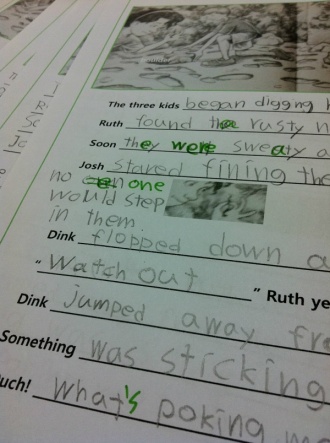 The three kids began digging
Ruth found the rusty
Soon they were sweaty a
Josh stared fining the
no one
would step
in them.
Dink flopped down a
"Watch out" Ruth ye
Dink jumped away fr
Something was sticking
uch! What's poking m